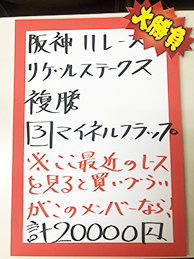 大勝負
阪神11レース
リゲルステークス
複勝
3マイネルフラップ
※ここ最近のレース
を見ると買いづらい
がこのメンバーなら!
計20000円